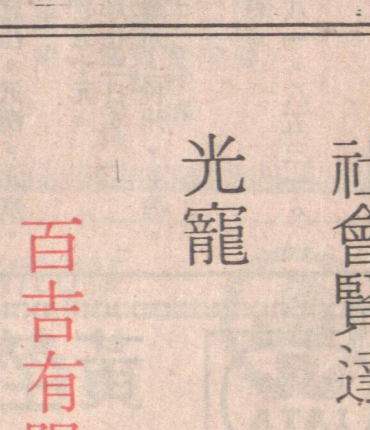 社會賢達
光寵
百吉有